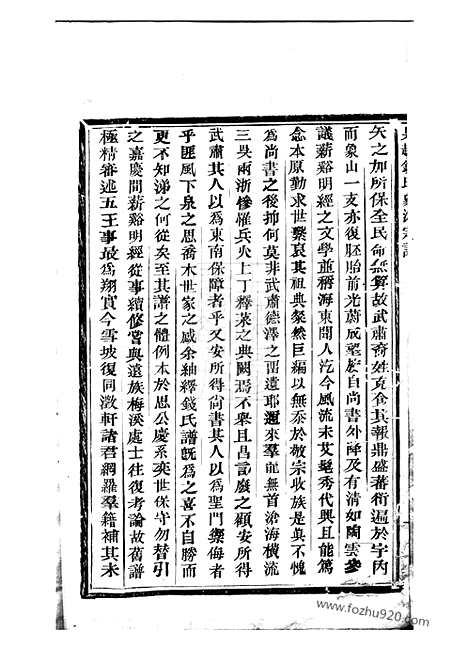 吳越錢氏
矢之加所保全民命無算故武肅裔姓克食其報鼎盛蕃衍遍於宇內
而象山一支亦復胚胎前光蔚成望族自尚書外禪及有清如陶雲參
議薪谿明經之文學並稱海東聞人迄今風流未艾髦秀代興且能篤
念本原勤求世繫哀其祖典粲然巨編以無忝於敬宗收族是真不愧
為尚書之後抑何莫非武肅德澤之留遺耶邇來羣龍無首滄海橫流
三吳兩浙慘罹兵火上丁釋菜之典闕焉不舉且昌言廢之顧安所得
武肅其人以為東南保障者乎又安所得尚書其人以為聖門禦侮者
乎匪風下泉之思喬木世家之感余紬繹錢氏譜既為之喜不自勝而
更不知涕之何從矣至其譜之體例本於思公慶系奕世保守勿替引
之嘉慶間薪谿明經從事續修嘗與遠族梅溪處士往復考論故舊譜
極精審述五王事最為翔實今雪坡復同澂軒諸君網羅羣籍補其未
www.fozhu920.com